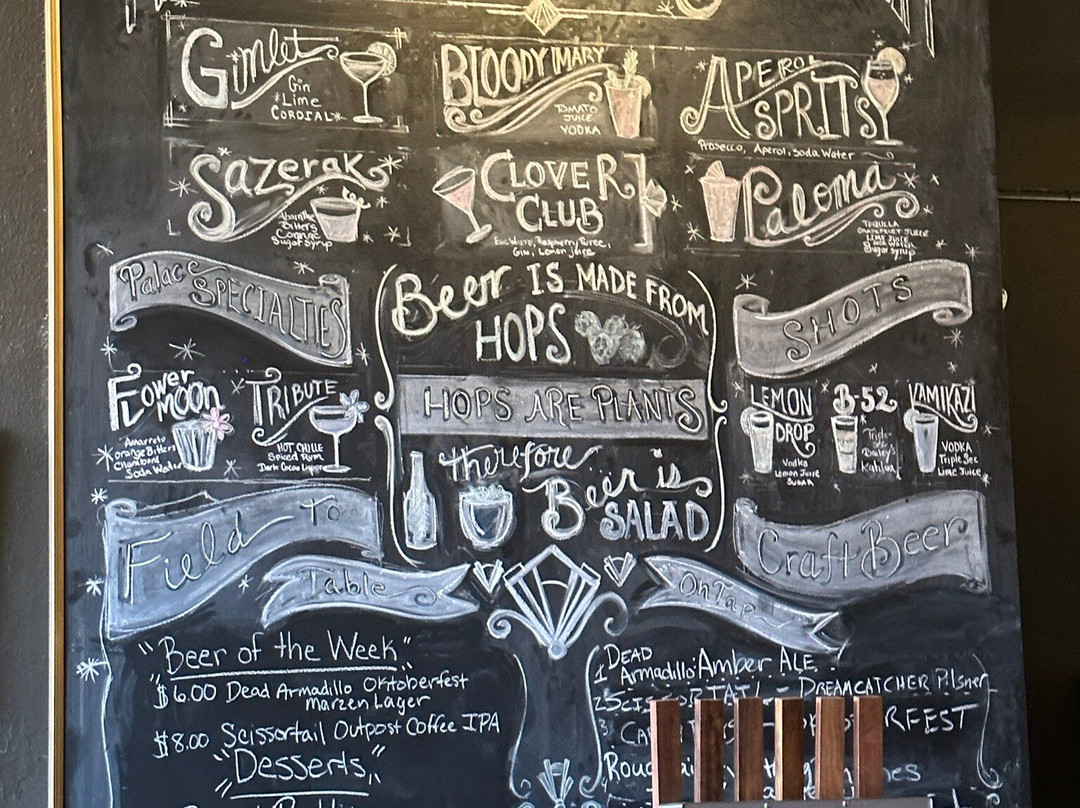 Gimlet
Gin
Lime
CORDIAL
BLOODY MARY
TOMATO
JUICE
VODKA
APEROL
SPRITS
Prosecco, Aperol, Soda Water
Sazerak
Absinthe
Bitters
Cognac
Sugar Syrup
CLOVER
CLUB
Egg White, Raspberry Puree,
Gin, Lemon Juice
Paloma
TEQUILLA
GRAPEFRUIT JUICE
LIME JUICE
SODA WATER
Sugar Syrup
Palace
SPECIALTIES
Flower
MOON
Amarreto
Orange Bitters
Chambord
Soda Water
TRIBUTE
HOT CHILLE
Spiced Rum
Dark Cocoa Liquor
Beer IS MADE FROM
HOPS
HOPS ARE PLANTS
therefore
Beer is
SALAD
SHOTS
LEMON
DROP
Vodka
Lemon Juice
SUGAR
B-52
Triple
Sec
Bailey's
Kahlua
KAMIKAZI
VODKA
Triple Sec
LIME JUICE
Field TO
Table
Craft Beer
On Tap
"Beer of the Week"
$6.00 Dead Armadillo Oktoberfest
Marzen Lager
$8.00 Scissortail Outpost Coffee IPA
"Desserts"
1 DEAD
Armadillo Amber ALE
2 - DREAMCATCHER Pilsner
3